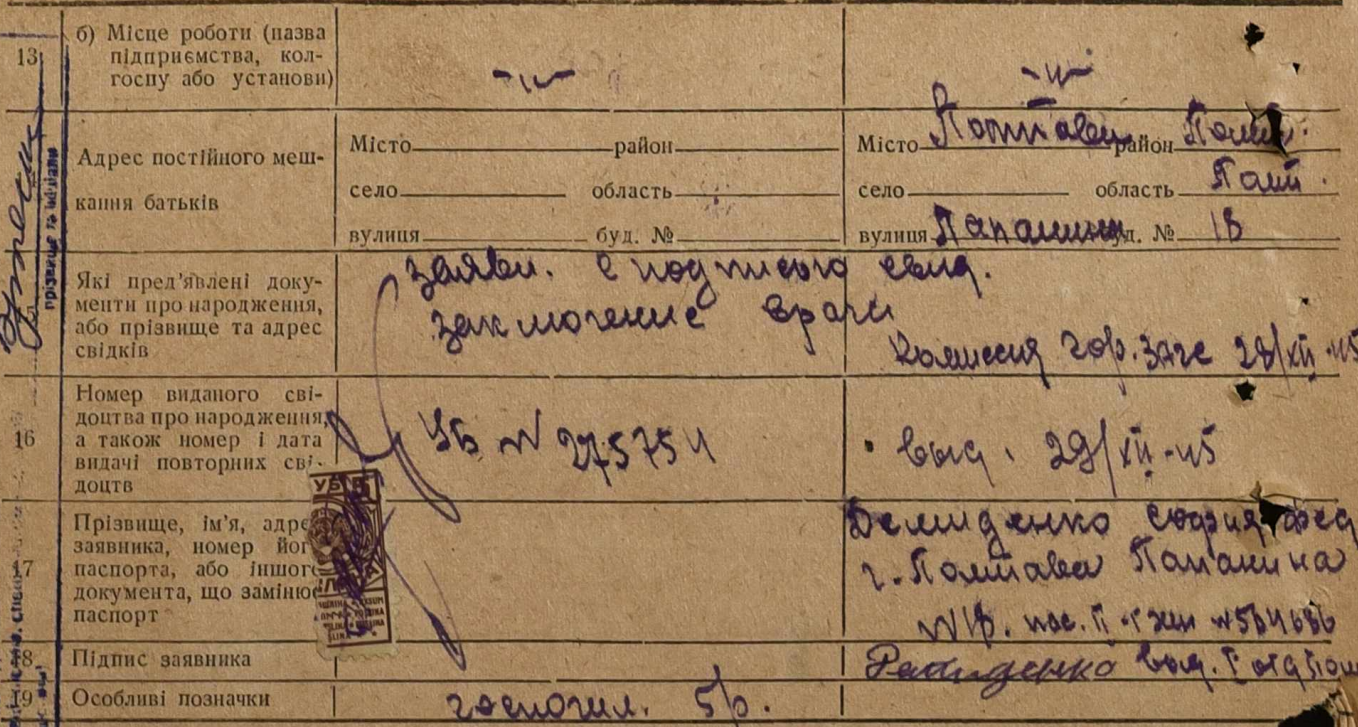 13
б) Місце роботи (назва
підприємства, кол-
госпу або установи)
-"-
-"-
Адрес постійного меш-
кання батьків
Місто район
село область
вулиця буд. №
Місто Полтава район Полт.
село область Полт.
вулиця Папанина буд. № 1В
Які пред'явлені доку-
менти про народження,
або прізвище та адрес
свідків
заявл. с подписью свид.
заключение врача
Комиссия гор. загс 28/XII-45
16
Номер виданого сві-
доцтва про народження,
а також номер і дата
видачі повторних сві-
доцтв
УБ № 275754
выд. 29/XII-45
17
Прізвище, ім'я, адрес
заявника, номер його
паспорта, або іншого
документа, що замінює
паспорт
Демиденко София Фед
г. Полтава Папанина
18
Підпис заявника
Демиденко выд. I отд Пол
19
Особливі позначки
госпошл. 5р.
прізвище та ініціали
УБ